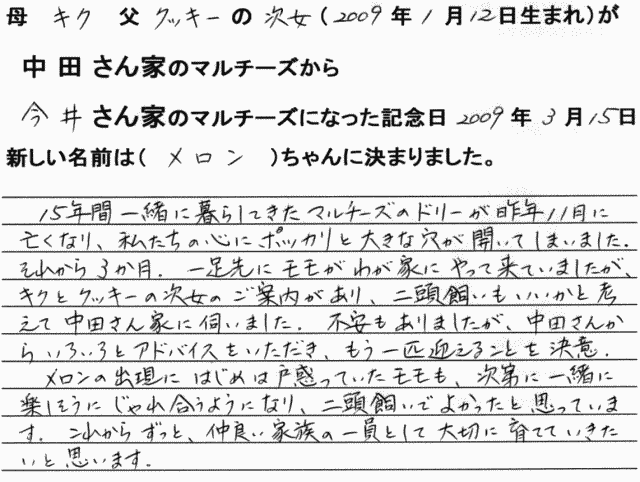 母 キク 父 クッキーの次女(2009年1月12日生まれ)が
中田さん家のマルチーズから
今井さん家のマルチーズになった記念日 2009年3月15日
新しい名前は( メロン )ちゃんに決まりました。
15年間一緒に暮らしてきたマルチーズのドリーが昨年11月に
亡くなり、私たちの心にポッカリと大きな穴が開いてしまいました.
それから3か月. 一足先にモモがわが家にやって来ていましたが、
キクとクッキーの次女のご案内があり、二頭飼いもいいかと考
えて中田さん家に伺いました. 不安もありましたが、中田さんか
らいろいろとアドバイスをいただき、もう一匹迎えることを決意.
メロンの出現にはじめは戸惑っていたモモも、次第に一緒に
楽しそうにじゃれ合うようになり、二頭飼いでよかったと思っていま
す. これからずっと、仲良い家族の一員として大切に育てていきた
いと思います.